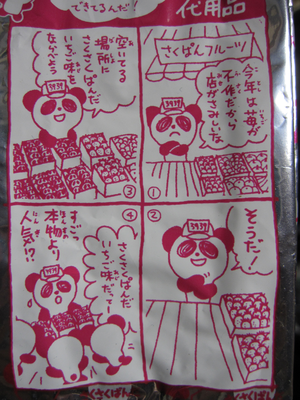 できてるんだ!
代用品
さくぱんフルーツ
今年は苺が
不作だから
店がさみしいな
3939
①
②
そうだ!
3939
空いてる
場所に
さくさくぱんだ
いちご味を
ならべよう
3939
③
④
さくさくぱんだ
いちご味だってー
すごい
本物より
人気!?
3939
さくさくぱん